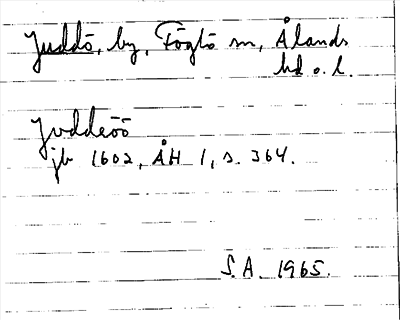 Juddö, by, Föglö sn, Ålands
hd o. l.
Juddeöö
jb 1602, ÅH 1, s. 364.
S.A. 1965.